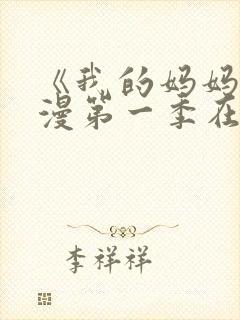 《我的妈妈
漫第一季在
李祥祥